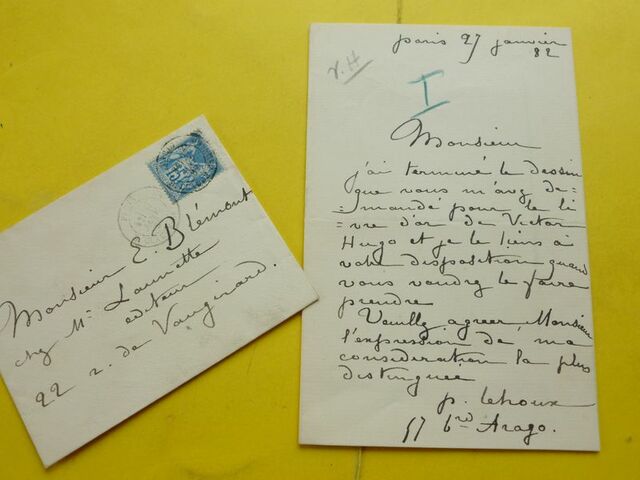 Monsieur E. Blémont
chez Mr Launette
editeur
22 r. de Vaugirard.
paris 27 janvier
82
V. H
I
Monsieur
j'ai terminé le dessin
que vous m'avez de=
=mandé pour le li
=vre d'or de Victor
Hugo et je le tiens à
votre disposition quand
vous voudrez le faire
prendre
Veuillez agreer, Monsieur
l'expression de ma
consideration la plus
distinguée
p. Lehoux
57 brd Arago.